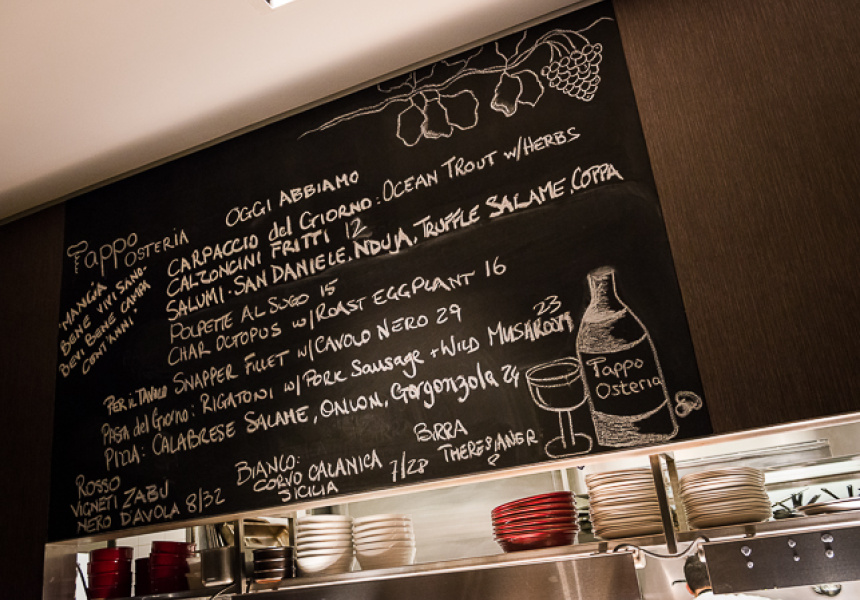 OGGI ABBIAMO
Tappo
OSTERIA
"MANGIA
BENE VIVI SANO-
BEVI BENE CAMPA
CENT'ANNI"
CARPACCIO del GIORNO: OCEAN TROUT w/HERBS
CALZONCINI FRITTI 12
SALUMI: SAN DANIELE, NDUJA, TRUFFLE SALAME, COPPA
POLPETTE AL SUGO 15
CHAR OCTOPUS w/ROAST EGGPLANT 16
PER IL TAVOLO SNAPPER FILLET w/CAVOLO NERO 29
PASTA del GIORNO: RIGATONI w/PORK SAUSAGE + WILD MUSHROOM 23
PIZZA: CALABRESE SALAME, ONION, Gorgonzola 24
Tappo
Osteria
ROSSO
VIGNETI ZABU
NERO D'AVOLA 8/32
BIANCO:
CORVO CALANICA 7/28
SICILIA
BIRRA
THERESIANER
8